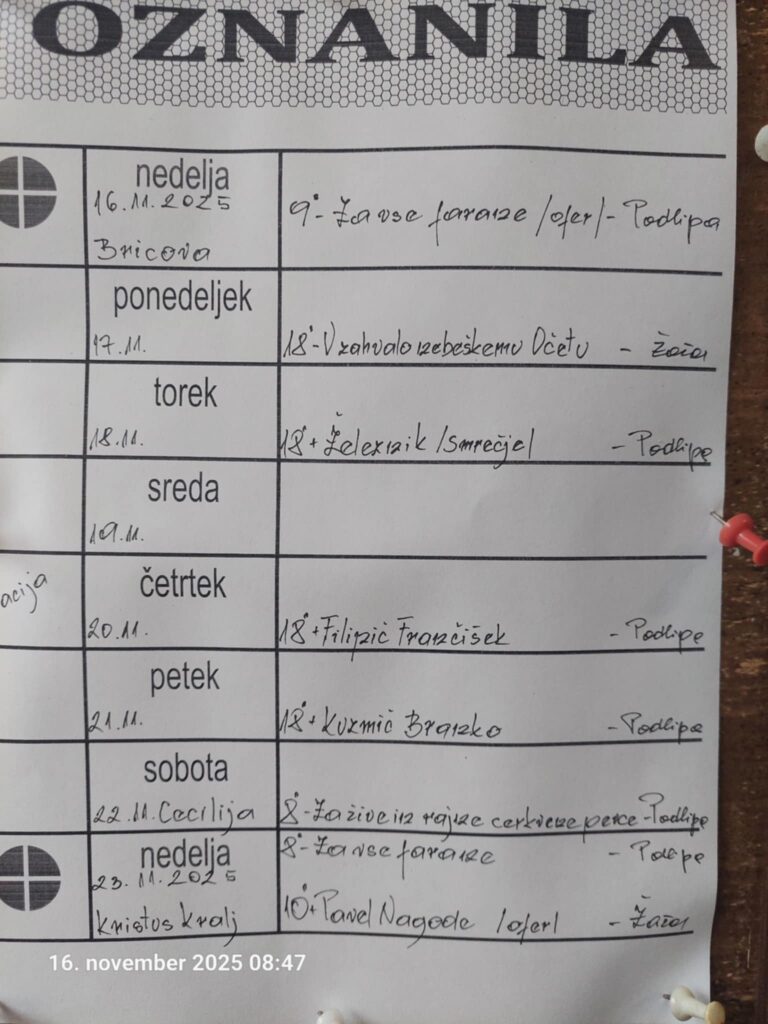 OZNANILA
nedelja
16.11.2025
Bricova
9°- Za vse farane /ofer/- Podlipa
ponedeljek
17.11.
18°- V zahvalo nebeškemu Očetu - Žažar
torek
18.11.
18°+ Železnik /Smrečje/ - Podlipa
sreda
19.11.
acija
četrtek
20.11.
18°+ Filipič Frančišek - Podlipa
petek
21.11.
18°+ Kuzmič Branko - Podlipa
sobota
22.11. Cecilija
8°- Za žive in rajne cerkvene pevce - Podlipa
nedelja
23.11.2025
Kristus Kralj
8°- Za vse farane - Podlipa
10°+ Pavel Nagode /ofer/ - Žažar
16. november 2025 08:47